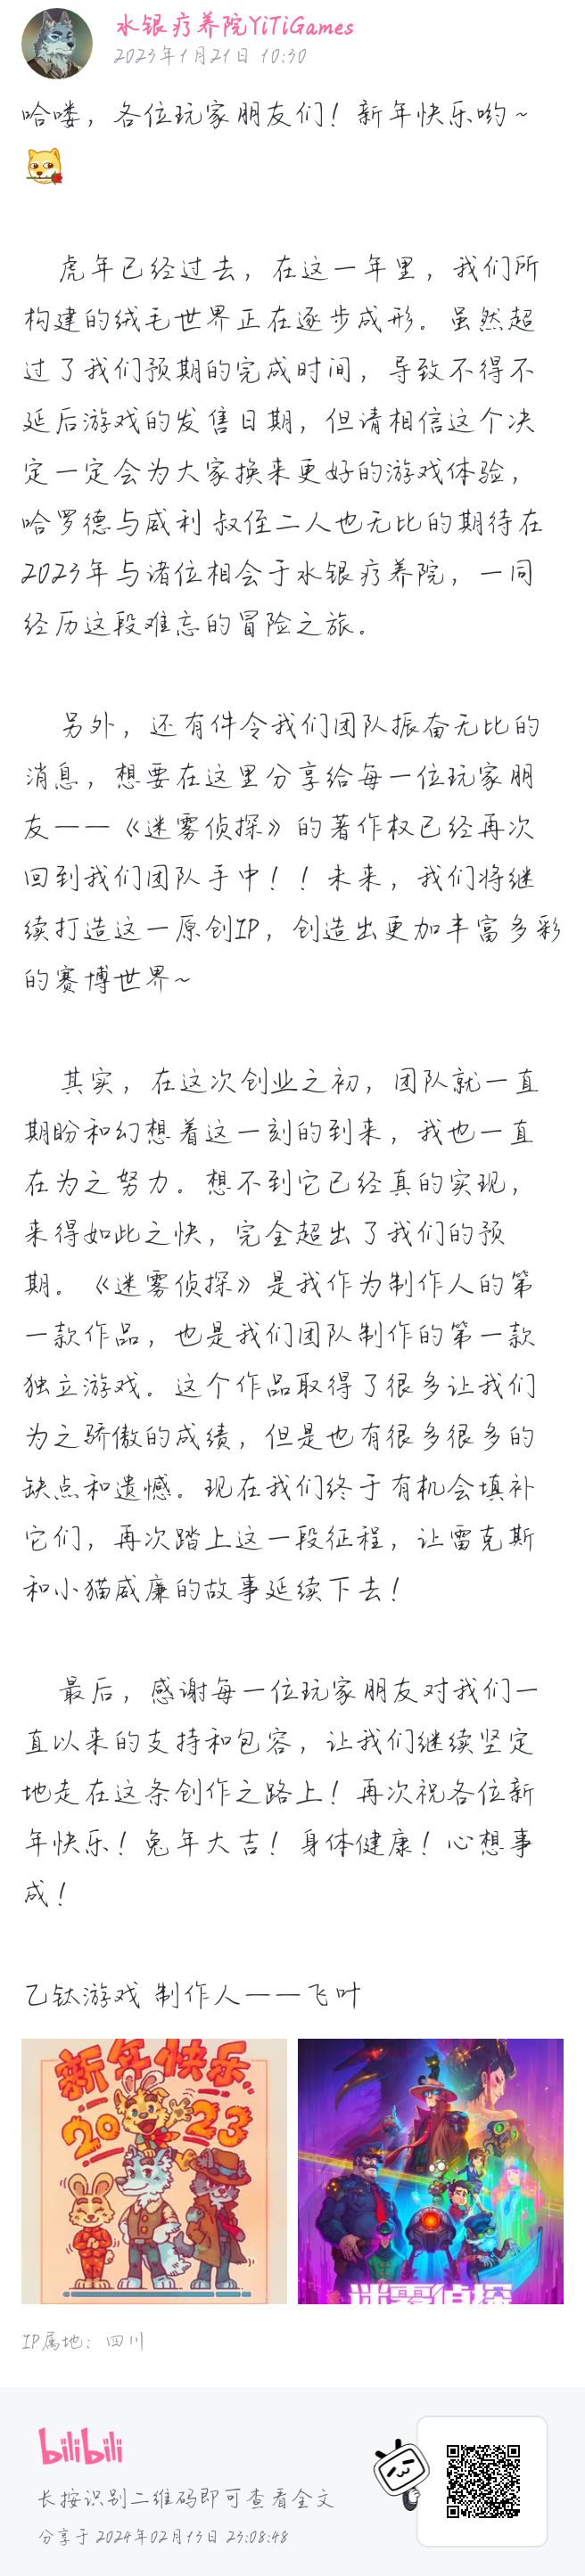 水银疗养院YiTiGames
2023年1月21日 10:30
哈喽，各位玩家朋友们！新年快乐哟~
虎年已经过去，在这一年里，我们所
构建的绒毛世界正在逐步成形。虽然超
过了我们预期的完成时间，导致不得不
延后游戏的发售日期，但请相信这个决
定一定会为大家换来更好的游戏体验，
哈罗德与威利叔侄二人也无比的期待在
2023年与诸位相会于水银疗养院，一同
经历这段难忘的冒险之旅。
另外，还有件令我们团队振奋无比的
消息，想要在这里分享给每一位玩家朋
友——《迷雾侦探》的著作权已经再次
回到我们团队手中！！未来，我们将继
续打造这一原创IP，创造出更加丰富多彩
的赛博世界~
其实，在这次创业之初，团队就一直
期盼和幻想着这一刻的到来，我也一直
在为之努力。想不到它已经真的实现，
来得如此之快，完全超出了我们的预
期。《迷雾侦探》是我作为制作人的第
一款作品，也是我们团队制作的第一款
独立游戏。这个作品取得了很多让我们
为之骄傲的成绩，但是也有很多很多的
缺点和遗憾。现在我们终于有机会填补
它们，再次踏上这一段征程，让雷克斯
和小猫威廉的故事延续下去！
最后，感谢每一位玩家朋友对我们一
直以来的支持和包容，让我们继续坚定
地走在这条创作之路上！再次祝各位新
年快乐！兔年大吉！身体健康！心想事
成！
乙钛游戏 制作人——飞叶
新年快乐
2023
迷雾侦探
IP属地：四川
bilibili
长按识别二维码即可查看全文
分享于 2024年02月13日 23:08:48